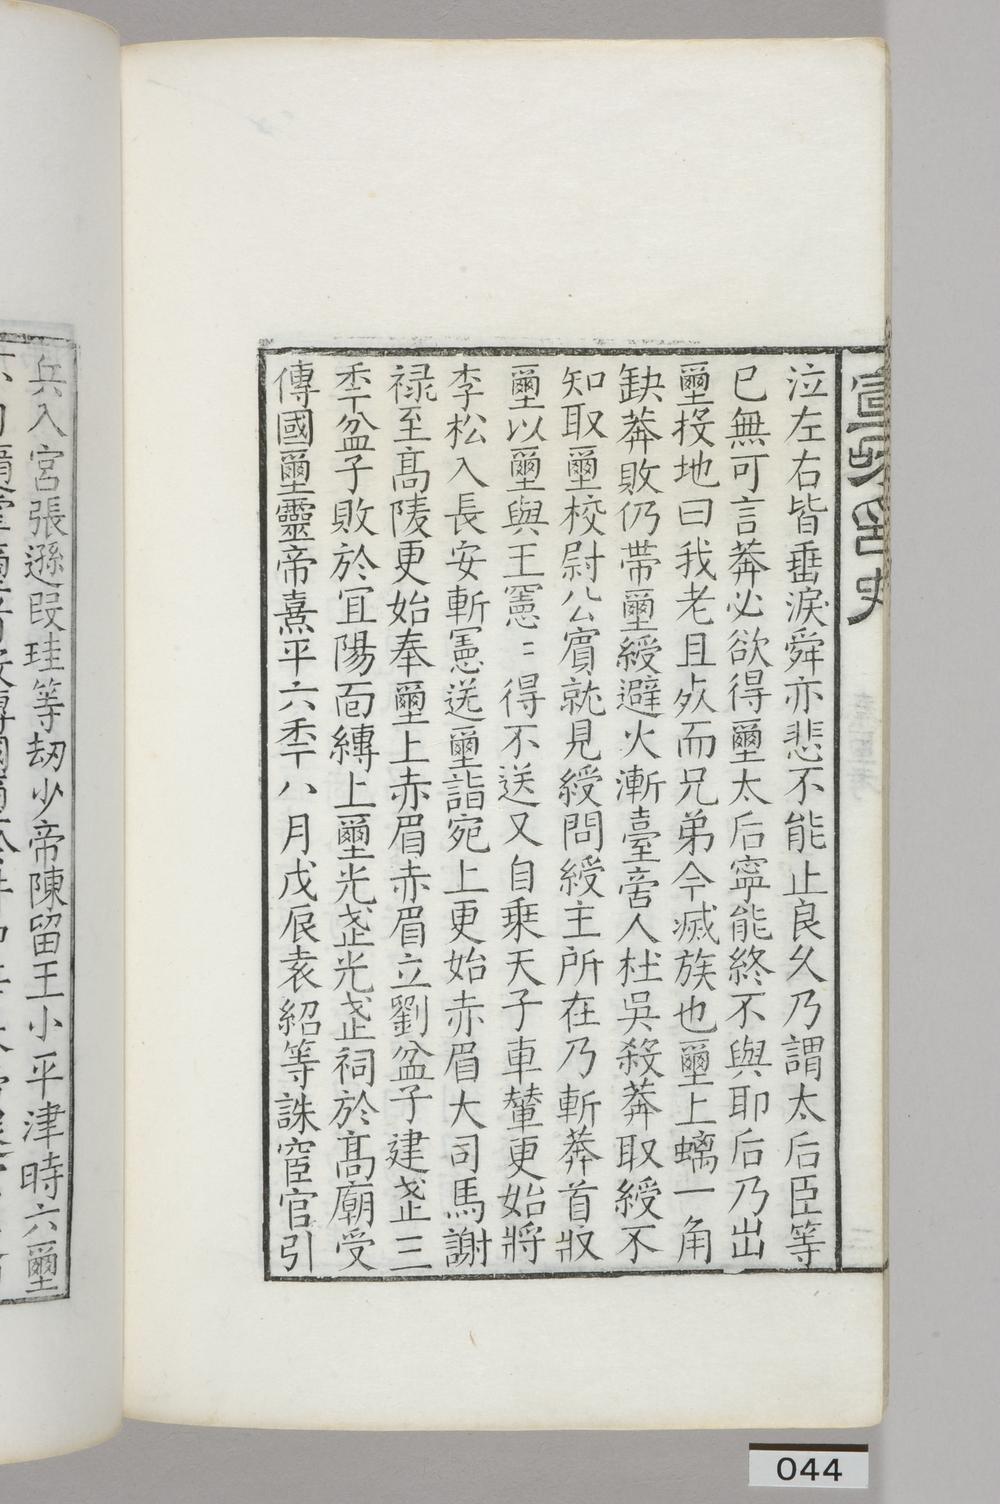 泣左右皆垂淚舜亦悲不能止良久乃謂太后臣等
已無可言莽必欲得璽太后寧能終不與耶后乃出
璽投地曰我老且死而兄弟今滅族也璽上螭一角
缺莽敗仍帶璽綬避火漸臺啇人杜吳殺莽取綬不
知取璽校尉公賓就見綬問綬主所在乃斬莽首収
璽以璽與王憲〻得不送又自乘天子車輦更始將
李松入長安斬憲送璽詣宛上更始赤眉大司馬謝
禄至高陵更始奉璽上赤眉赤眉立劉盆子建武三
秊盆子敗於宜陽面縛上璽光武光武祠於高廟受
傳國璽靈帝熹平六秊八月戊辰袁紹等誅宦官引
兵入宮張遜段珪等刼少帝陳留王小平津時六璽
044